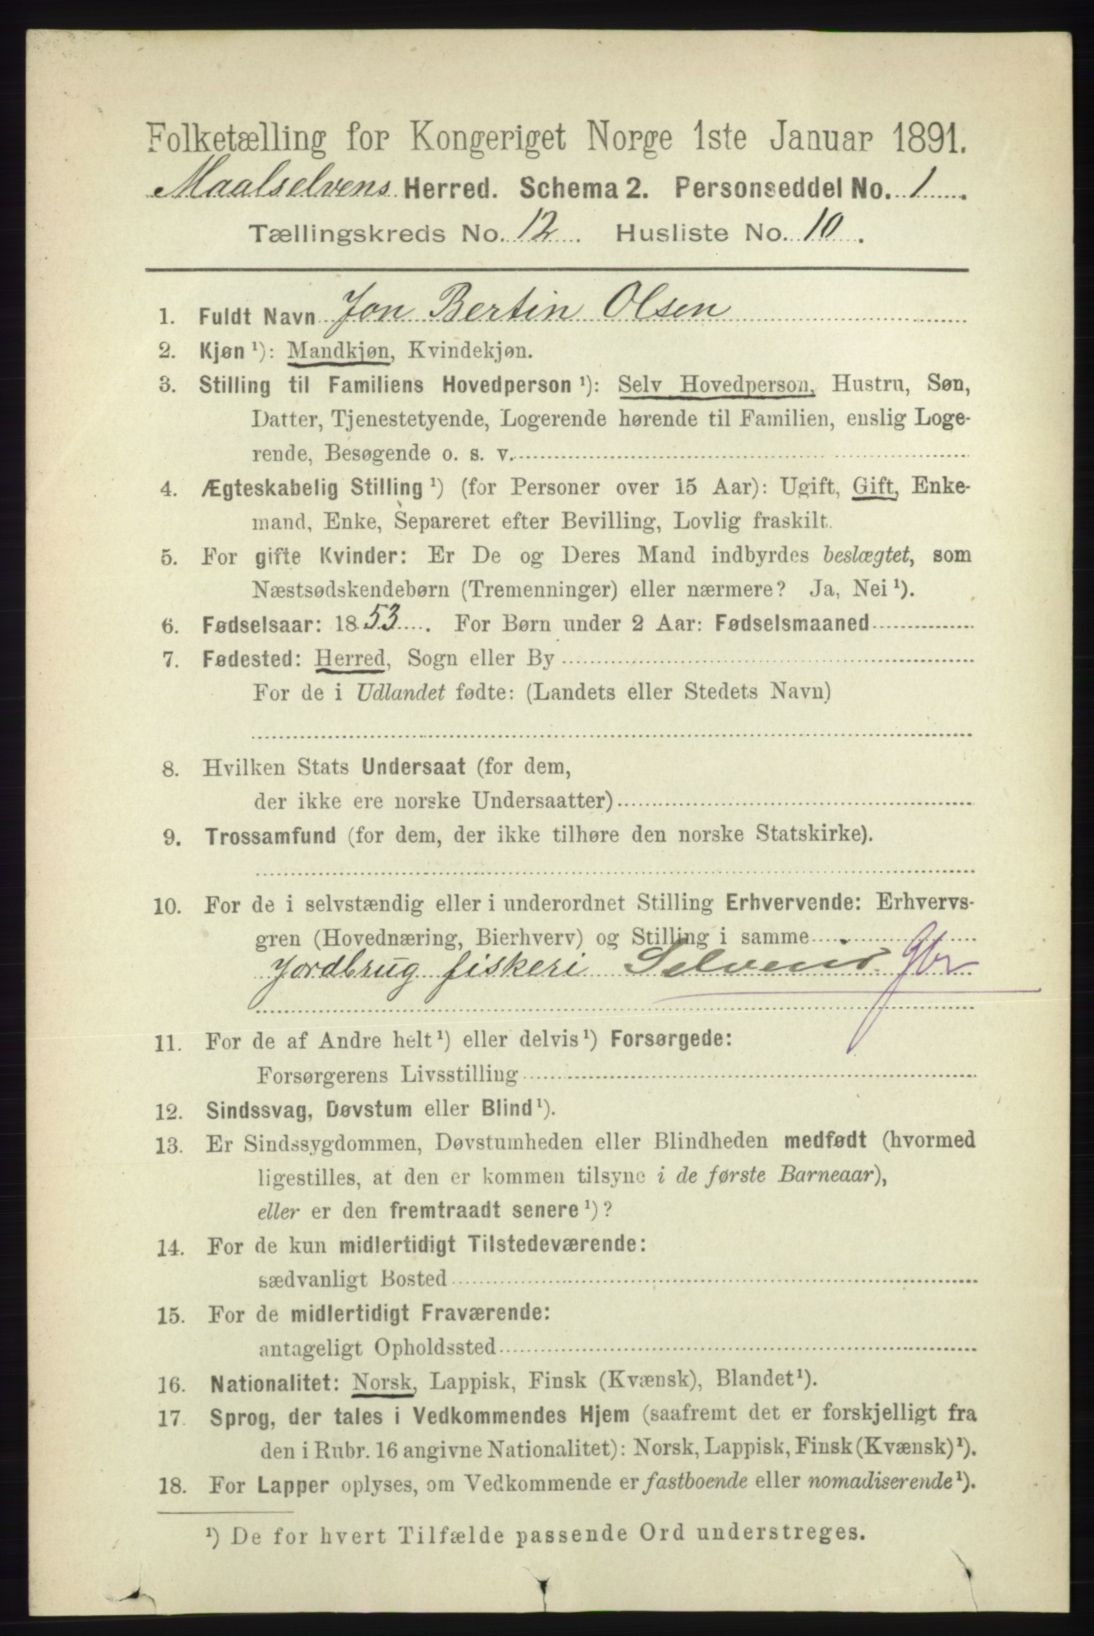 Folketælling for Kongeriget Norge 1ste Januar 1891.
Maalselvens Herred. Schema 2. Personseddel No. 1.
Tællingskreds No. 12. Husliste No. 10.
1. Fuldt Navn Jon Bertin Olsen
2. Kjøn ¹): Mandkjøn, Kvindekjøn.
3. Stilling til Familiens Hovedperson ¹): Selv Hovedperson, Hustru, Søn,
Datter, Tjenestetyende, Logerende hørende til Familien, enslig Loge-
rende, Besøgende o. s. v.
4. Ægteskabelig Stilling ¹) (for Personer over 15 Aar): Ugift, Gift, Enke-
mand, Enke, Separeret efter Bevilling, Lovlig fraskilt.
5. For gifte Kvinder: Er De og Deres Mand indbyrdes beslægtet, som
Næstsødskendebørn (Tremenninger) eller nærmere? Ja, Nei ¹).
6. Fødselsaar: 1853. For Børn under 2 Aar: Fødselsmaaned
7. Fødested: Herred, Sogn eller By
For de i Udlandet fødte: (Landets eller Stedets Navn)
8. Hvilken Stats Undersaat (for dem,
der ikke ere norske Undersaatter)
9. Trossamfund (for dem, der ikke tilhøre den norske Statskirke).
10. For de i selvstændig eller i underordnet Stilling Erhvervende: Erhvervs-
gren (Hovednæring, Bierhverv) og Stilling i samme
Jordbrug fiskeri Selveier Gbr
11. For de af Andre helt ¹) eller delvis ¹) Forsørgede:
Forsørgerens Livsstilling
12. Sindssvag, Døvstum eller Blind ¹).
13. Er Sindssygdommen, Døvstumheden eller Blindheden medfødt (hvormed
ligestilles, at den er kommen tilsyne i de første Barneaar),
eller er den fremtraadt senere ¹)?
14. For de kun midlertidigt Tilstedeværende:
sædvanligt Bosted
15. For de midlertidigt Fraværende:
antageligt Opholdssted
16. Nationalitet: Norsk, Lappisk, Finsk (Kvænsk), Blandet ¹).
17. Sprog, der tales i Vedkommendes Hjem (saafremt det er forskjelligt fra
den i Rubr. 16 angivne Nationalitet): Norsk, Lappisk, Finsk (Kvænsk) ¹).
18. For Lapper oplyses, om Vedkommende er fastboende eller nomadiserende ¹).
¹) De for hvert Tilfælde passende Ord understreges.